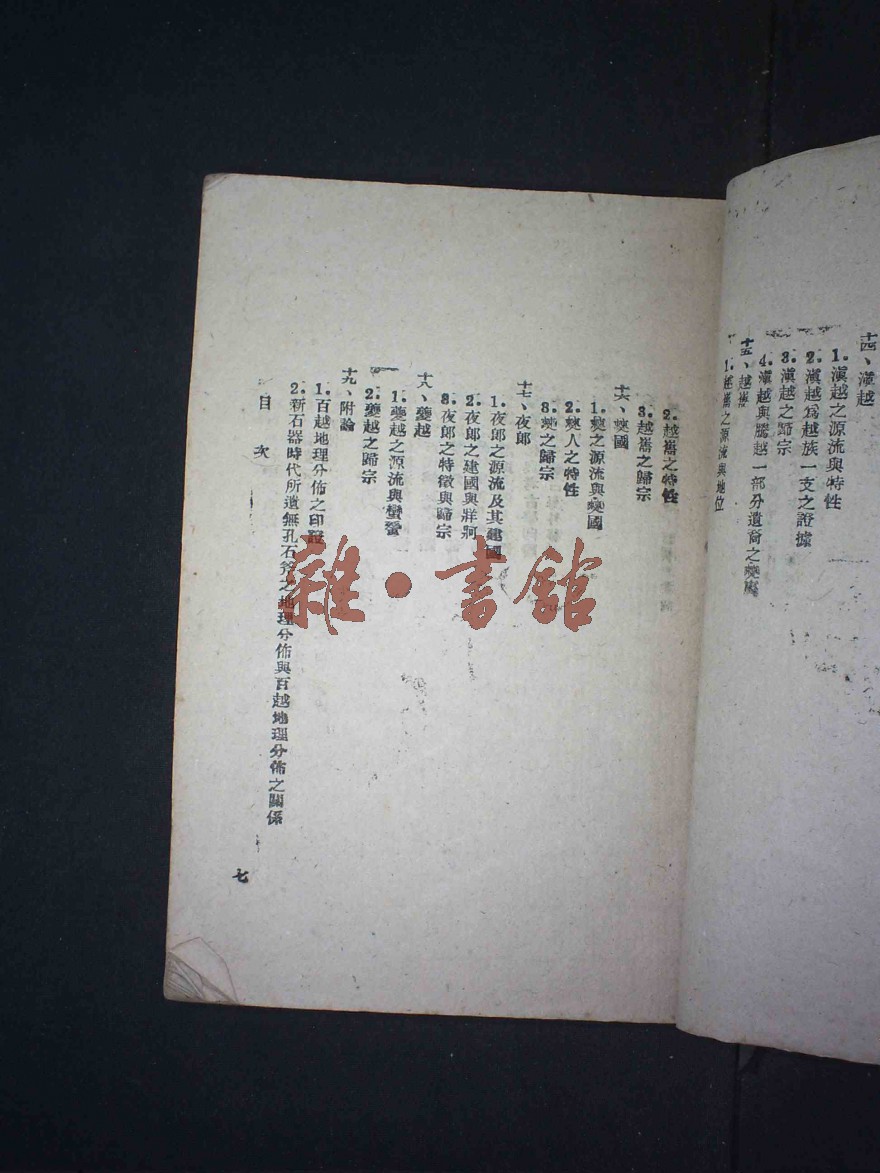 十四、滇越
1.滇越之源流與特性
2.滇越爲越族一支之證據
3.滇越之歸宗
4.滇越與騰越一部分遺裔之
十五、越嶲
1.越嶲之源流與地位
2.越嶲之特性
3.越嶲之歸宗
十六、僰國
1.僰之源流與僰國
2.僰人之特性
3.僰之歸宗
十七、夜郎
1.夜郎之源流及其建國
2.夜郎之建國與牂牁
3.夜郎之特徵與歸宗
十八、夔越
1.夔越之源流與蠻蜑
2.夔越之歸宗
十九、附論
1.百越地理分佈之印證
2.新石器時代所遺無孔石斧之地理分佈與百越地理分佈之關係
目次
七
雜·書館